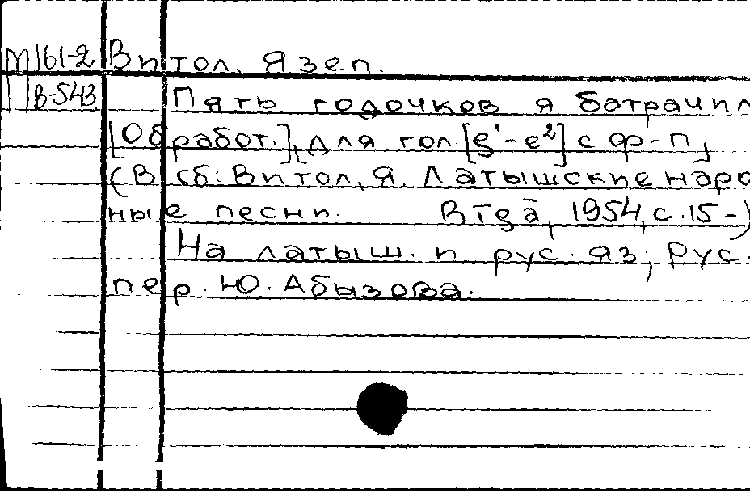 М 161-2 Витол, Язеп.
В-543 Пять годочков я батрачил
[Обработ.], для гол. [g¹-e²] с ф-п,
(В сб: Витол, Я. Латышские народ
ные песни. Втда, 1954, с. 15-)
На латыш. и рус. яз; Рус.
пер. Ю. Абызова.